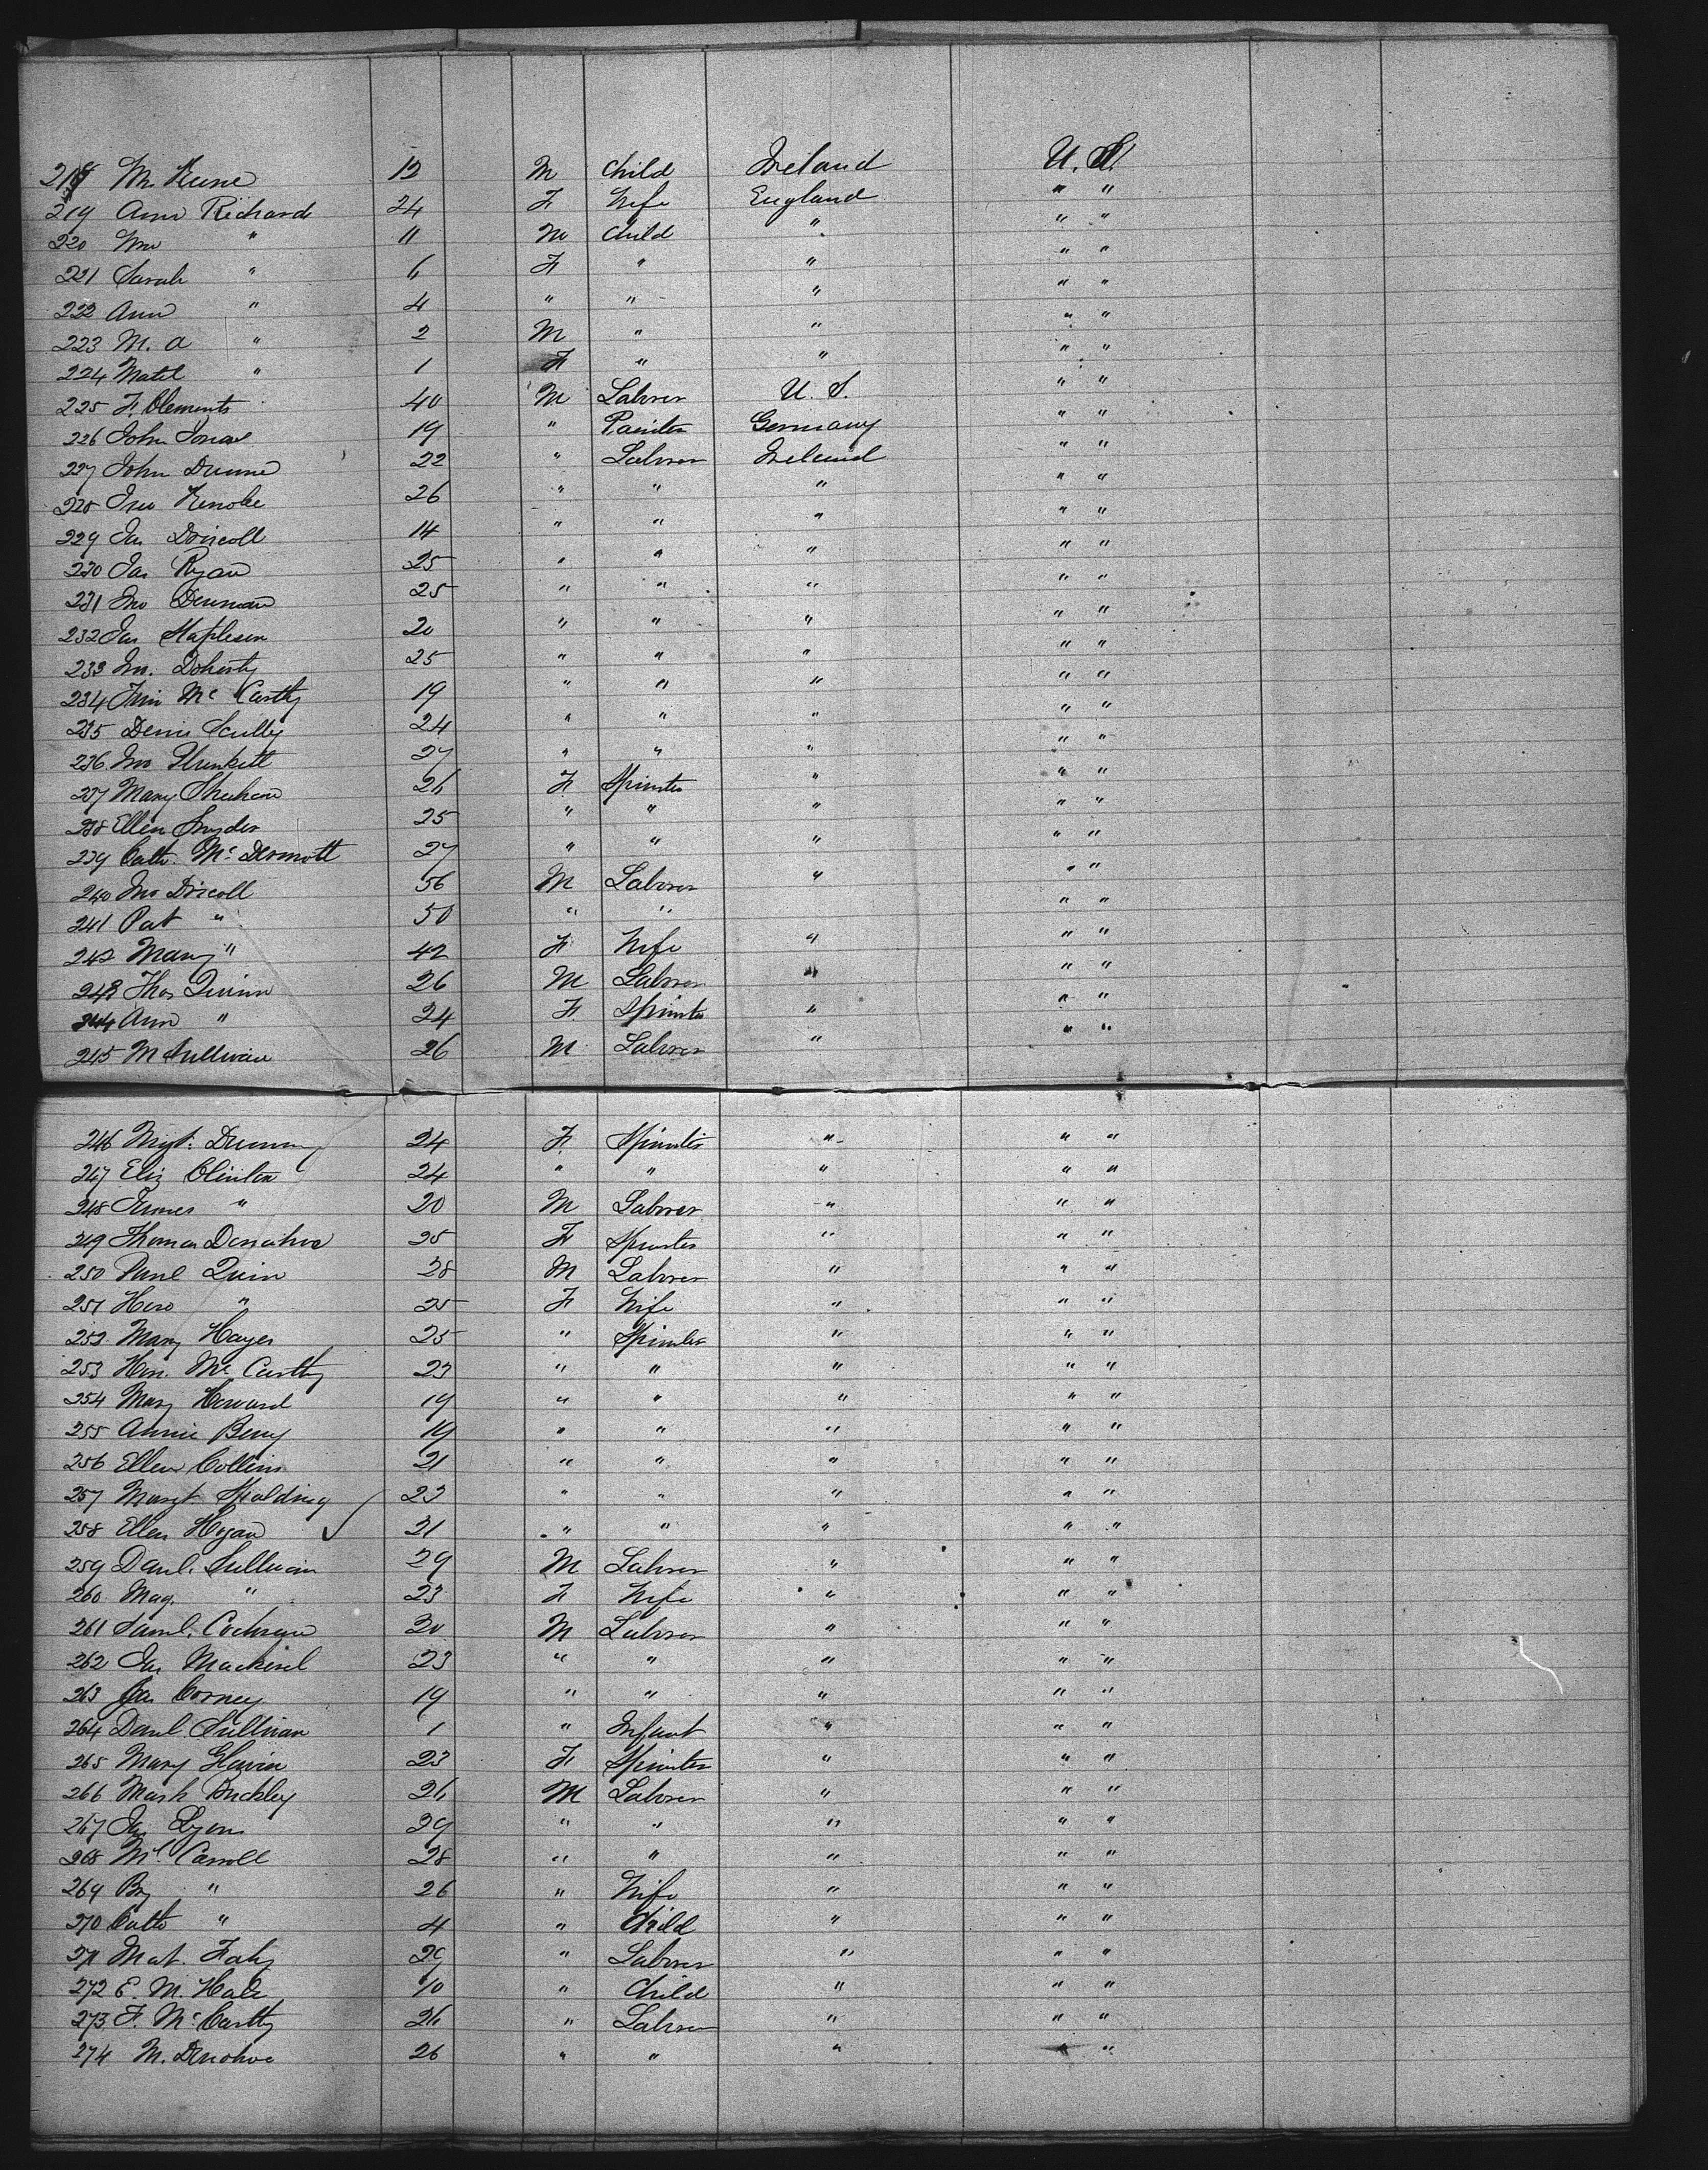 218 M. Keene 12 M Child Ireland U. S.
219 Ann Richards 24 F Wife England " "
220 Wm " 11 M Child " " "
221 Sarah " 6 F " " " "
222 Ann " 4 " " " " "
223 M. A " 2 M " " " "
224 Matil " 1 F " " " "
225 F. Clements 40 M Labrer U. S. " "
226 John 19 " Painter Germany " "
227 John Dunne 22 " Labrer Ireland " "
228 Jno 26 " " " " "
229 Jas Driscoll 14 " " " " "
230 Jas Ryan 25 " " " " "
231 Jno Denman 25 " " " " "
232 Jas Stapleson 20 " " " " "
233 Jno. Doherty 25 " " " " "
234 Tim McCarthy 19 " " " " "
235 Denis Scully 24 " " " " "
236 Jno Plunkett 27 " " " " "
237 Mary Sheehan 26 F Spinster " " "
238 Ellen Snyder 25 " " " " "
239 Cath. McDermott 27 " " " " "
240 Jno Driscoll 56 M Labrer " " "
241 Pat " 50 " " " "
242 Mary " 42 F Wife " " "
243 Thos Quinn 26 M Labrer " " "
244 Ann " 24 F Spinster " " "
245 M Sullivan 26 M Labrer " " "
246 Mgt. 24 F Spinster " " "
247 Eliz Clinton 24 " " " " "
248 James " 20 M Labrer " " "
249 Thomas Donahoe 25 F Spinster " " "
250 Danl Quin 28 M Labrer " " "
251 Hero " 25 F Wife " " "
252 Mary Hayes 25 " Spinster " " "
253 Hon. McCarthy 23 " " " " "
254 Mary Howard 19 " " " " "
255 Annie Berry 19 " " " " "
256 Ellen Collins 21 " " " " "
257 Margt Spalding 23 " " " " "
258 Ellen Hogan ✓ 21 " " " " "
259 Danl. Sullivan 29 M Labrer " " "
260 Mag. " 23 F Wife " " "
261 Saml. Cochrane 20 M Labrer " " "
262 Jas 23 " " " " "
263 Jas Corney 19 " " " " "
264 Danl. Sullivan 1 " Infant " " "
265 Mary Glavin 23 F Spinster " " "
266 Mark Buckley 26 M Labrer " " "
267 Jas Lyons 29 " " " " "
268 Ml. Carroll 28 " " " " "
269 By " 26 " Wife " " "
270 Cath " 4 " Child " " "
271 Mat. Fahy 29 " Labrer " " "
272 E. M. Hale 10 " Child " " "
273 F. McCarthy 26 " Labrer " " "
274 M. Donohoe 26 " " " " "